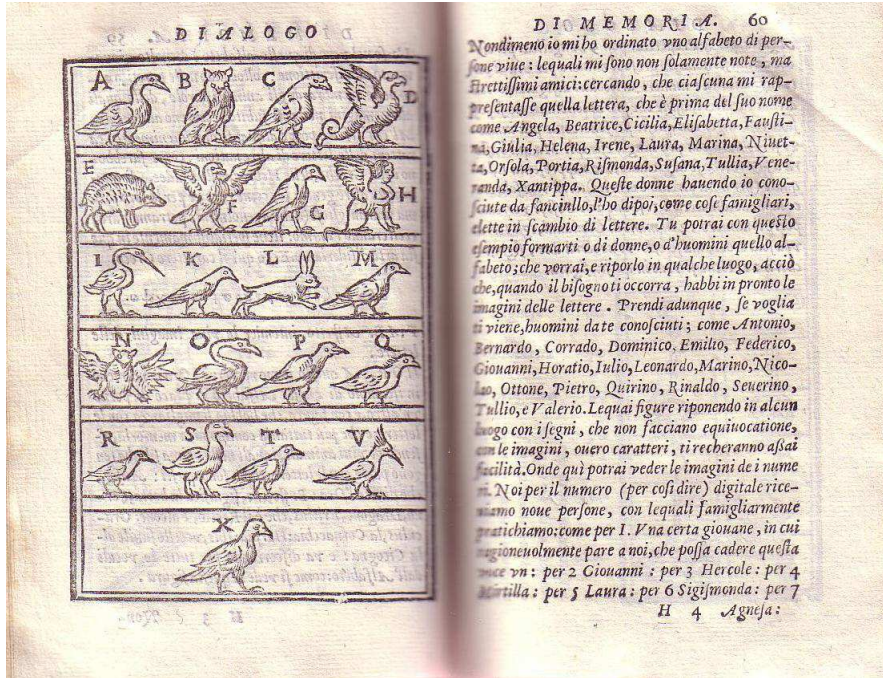 DIALOGO
A B C D
E F G H
I K L M
N O P Q
R S T V
X
DI MEMORIA. 60
Nondimeno io mi ho ordinato vno alfabeto di per-
ſone viue: lequali mi ſono non ſolamente note, ma
ſtrettiſſimi amici: cercando, che ciaſcuna mi rap-
preſentaſſe quella lettera, che è prima del ſuo nome
come Angela, Beatrice, Cicilia, Eliſabetta, Fauſti-
na, Giulia, Helena, Irene, Laura, Marina, Niuet-
ta, Orſola, Portia, Riſmonda, Suſana, Tullia, Vene-
randa, Xantippa. Queſte donne hauendo io cono-
ſciute da fanciullo, l'ho dipoi, come coſe famigliari,
elette in ſcambio di lettere. Tu potrai con queſto
eſempio formarti o di donne, o d'huomini quello al-
fabeto; che vorrai, e riporlo in qualche luogo, acciò
che, quando il biſogno ti occorra, habbi in pronto le
imagini delle lettere. Prendi adunque, ſe voglia
ti viene, huomini da te conoſciuti; come Antonio,
Bernardo, Corrado, Dominico, Emilio, Federico,
Giouanni, Horatio, Iulio, Leonardo, Marino, Nico-
lao, Ottone, Pietro, Quirino, Rinaldo, Seuerino,
Tullio, e Valerio. Lequai figure riponendo in alcun
luogo con i ſegni, che non facciano equiuocatione,
con le imagini, ouero caratteri, ti recheranno aſſai
facilità. Onde quì potrai veder le imagini de i nume
ri. Noi per il numero (per coſi dire) digitale rice-
uiamo noue perſone, con lequali famigliarmente
pratichiamo: come per I. Vna certa giouane, in cui
ragioneuolmente pare a noi, che poſſa cadere queſta
voce vn: per 2 Giouanni: per 3 Hercole: per 4
Martilla: per 5 Laura: per 6 Sigiſmonda: per 7
H 4 Agneſa: